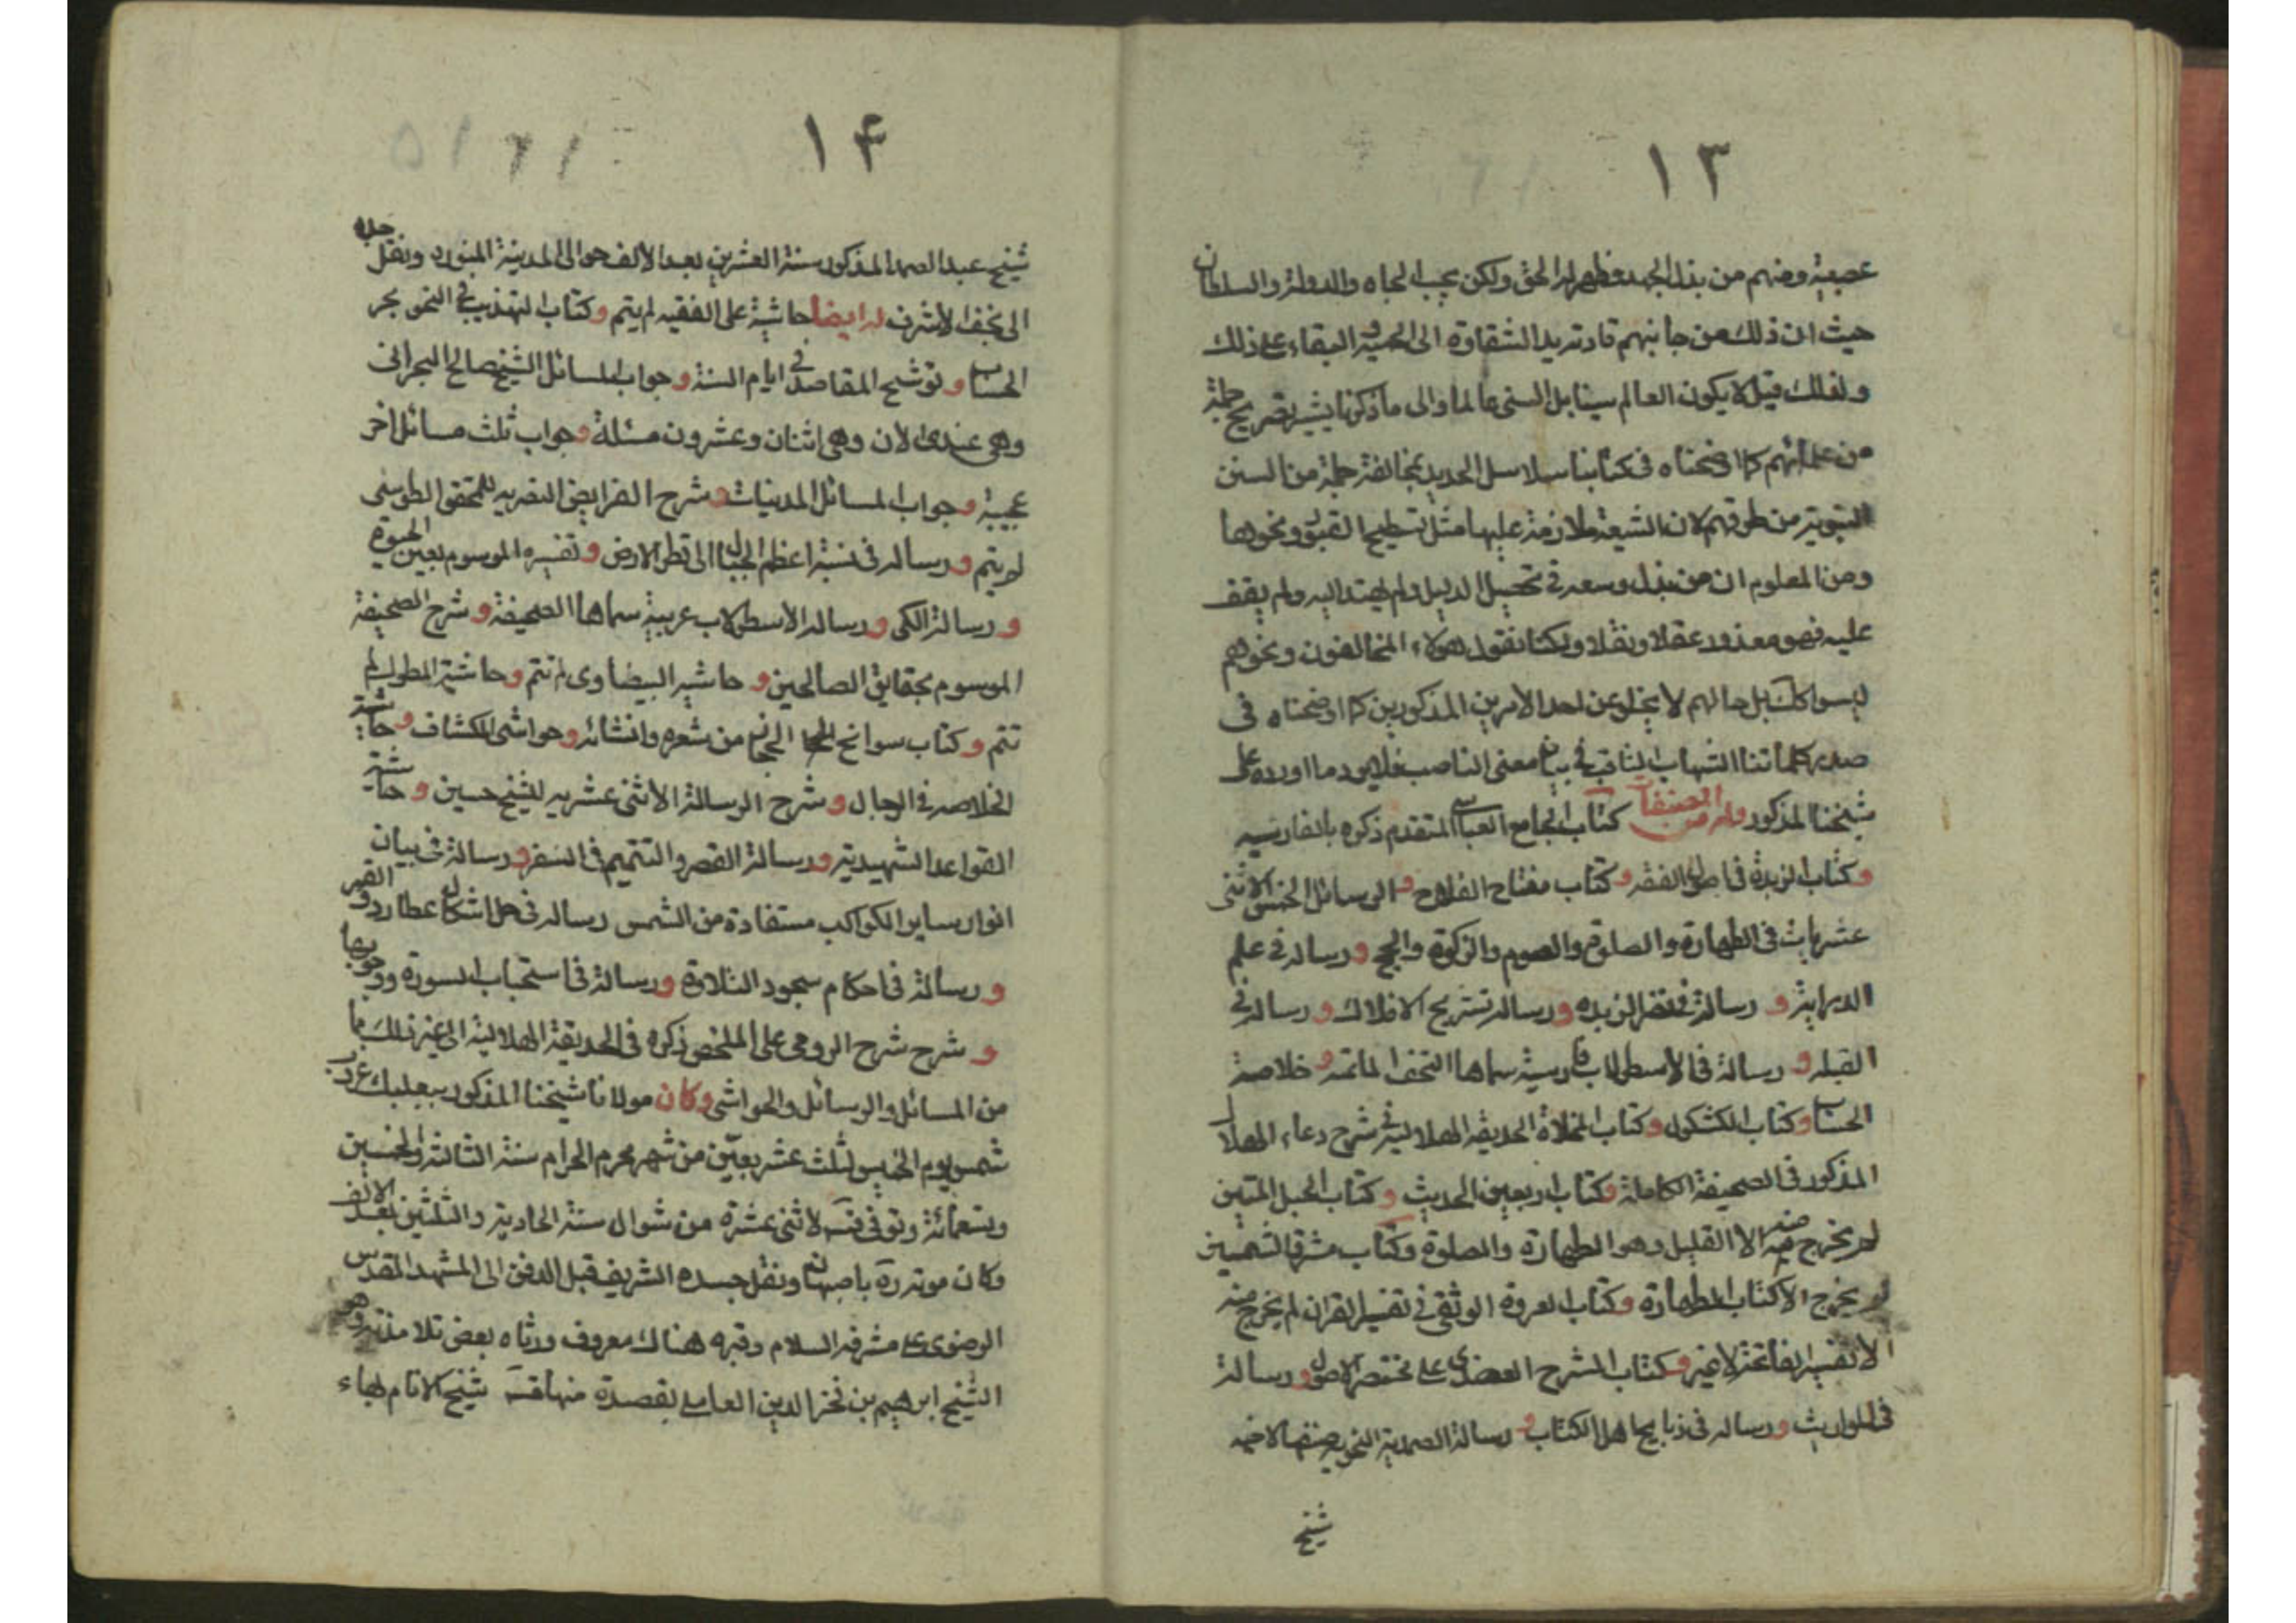 ١٣
عصبية ومنهم من بذل الجهد فظهر له الحق ولكن يحب الجاه والدولة والسلطان
حيث ان ذلك من جانبهم قادته يد الشقاوة الى الحمية و البقاء على ذلك
ولذلك قيل لا يكون العالم سينا بل السنى عالما والى ما ذكرنا يشير تصريح جملة
من علمائهم كما اوضحناه فى كتابنا سلاسل الحديد بمخالفة جملة من السنن
النبوية من طرقهم لان الشيعة ملازمة عليها مثل تسطيح القبور ونحوها
ومن المعلوم ان من بذل وسعه فى تحصيل الدليل ولم يهتد اليه ولم يقف
عليه فهو معذور عقلا ونقلا ولكنا نقول هولاء المخالفون ونحوهم
ليسوا كك بل حالهم لا يخلو عن احد الامرين المذكورين كما اوضحناه فى
صدر كتابنا الشهاب الثاقب فى بيان معنى الناصب فلا يرد ما اورده على
شيخنا المذكور وله من المصنفات كتاب الجامع العباسى المتقدم ذكره بالفارسيه
وكتاب الزبدة فى اصول الفقه وكتاب مفتاح الفلاح و الرسائل الخمس الاثنى
عشريات فى الطهارة والصلوة والصوم والزكوة والحج ورساله فى علم
الدراية و رسالة فى لغز الزبده ورسالة تشريح الافلاك ورساله فى
القبله و رسالة فى الاسطرلاب فارسية سماها التحفة الحاتمه وخلاصة
الحساب وكتاب الكشكول وكتاب المخلاة الحديقه الهلالية فى شرح دعاء الهلال
المذكور فى الصحيفة الكاملة وكتاب اربعين الحديث وكتاب الحبل المتين
لم يخرج منه الا القليل وهو الطهارة والصلوة وكتاب مشرق الشمسين
لم يخرج الا كتاب الطهارة وكتاب العروة الوثقى فى تفسير القران لم يخرج منه
الا تفسير الفاتحة لا غير وكتاب الشرح العضدى على مختصر الاصول ورسالة
فى المواريث ورساله فى ذبايح اهل الكتاب و رسالة الصمدية النحو صنفها لاخيه
شيخ
١۴
شيخ عبد الصمد المذكور سنة العشرين بعد الالف حوالى المدينة المنوره ونقل جسده
الى نجف الاشرف له ايضا حاشية على الفقيه لم يتم وكتاب التهذيب فى النحو بحر
الحساب و توشيح المقاصد فى ايام السنة وجواب المسائل الشيخ صالح البحرانى
وهى عندى الان وهى اثنان وعشرون مسئلة وجواب ثلث مسائل اخر
عجيبة وجواب المسائل المدنيات وشرح الفرايض النصريه للمحقق الطوسى
لم يتم ورساله فى نسبة اعظم الجبال الى قطر الارض وتفسيره الموسوم بعين الحيوة
ورسالة الكر ورساله الاسطرلاب عربية سماها الصحيفة وشرح الصحيفة
الموسوم بحقايق الصالحين و حاشيه البيضاوى لم تتم وحاشية المطول لم
تتم وكتاب سوانح الحجاز من شعره وانشائه وحواشى الكشاف وحاشية
الخلاصه فى الرجال وشرح الرسالة الاثنى عشريه للشيخ حسين وحاشية
القواعد الشهيدية ورسالة القصر والتتميم فى السفر ورسالة فى بيان
انوار ساير الكواكب مستفادة من الشمس رساله فى حل اشكال عطارد والقمر
ورسالة فى احكام سجود التلاوة ورسالة فى استحباب السورة ووجوبها
و شرح شرح الرومى على الملخص ذكره فى الحديقة الهلالية الى غير ذلك مما
من المسائل والرسائل والحواشى وكان مولانا شيخنا المذكور ببعلبك غروب
شمس يوم الخميس لثلث عشر بقين من شهر محرم الحرام سنة الثالثة والخمسين
وتسعمائة وتوفى قده لاثنى عشرة من شوال سنة الحادية والثلثين بعد الالف
وكان موته ره باصبهان ونقل جسده الشريف قبل الدفن الى المشهد المقدس
الرضوى على مشرفه السلام وقبره هناك معروف ورثاه بعض تلامذته وهو
الشيخ ابرهيم بن فخر الدين العاملى بقصيدة منها قده شيخ الانام بهاء